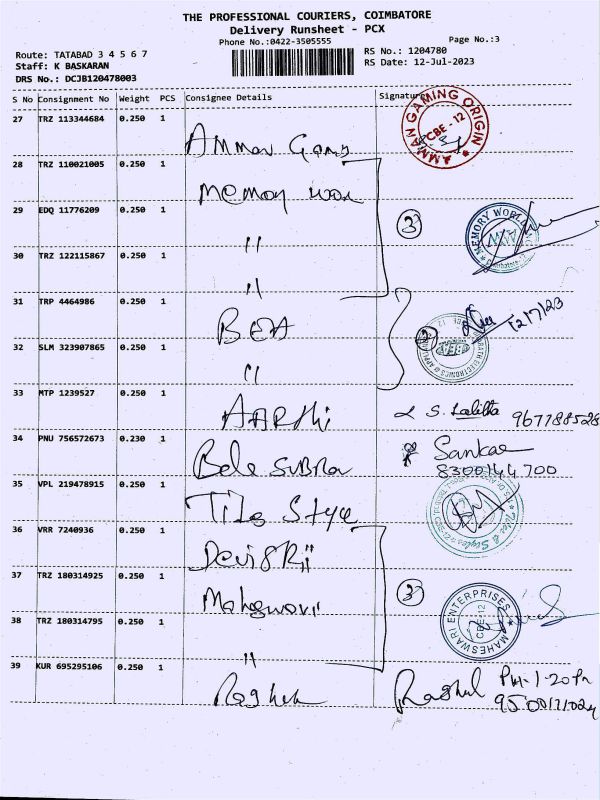 THE PROFESSIONAL COURIERS, COIMBATORE
Delivery Runsheet - PCX
Phone No.:0422-3505555
Page No.:3
Route: TATABAD 3 4 5 6 7
RS No.: 1204780
Staff: K BASKARAN
RS Date: 12-Jul-2023
DRS No.: DCJB120478003
S No Consignment No Weight PCS Consignee Details Signature
27 TRZ 113344684 0.250 1
AMMAN GAMING ORIGIN
CBE - 12
28 TRZ 110021005 0.250 1 Memory
29 EDQ 11776209 0.250 1 " 3
MEMORY WORLD
30 TRZ 122115867 0.250 1 "
31 TRP 4464986 0.250 1 BEA 2 12/7/23
BEA
32 SLM 323907865 0.250 1 "
33 MTP 1239527 0.250 1 AARthi S. Lalitha 967788528
34 PNU 756572673 0.230 1 Sankar
8300144700
35 VPL 219478915 1 0.250 Tiles Style
Tiles & Styles
36 VRR 7240936 0.250 1 Devi SRii
37 TRZ 180314925 0.250 1 Maheswari 3
MAHESWARI ENTERPRISES
CBE-12
38 TRZ 180314795 0.250 1 "
39 KUR 695295106 0.250 1 Raghul